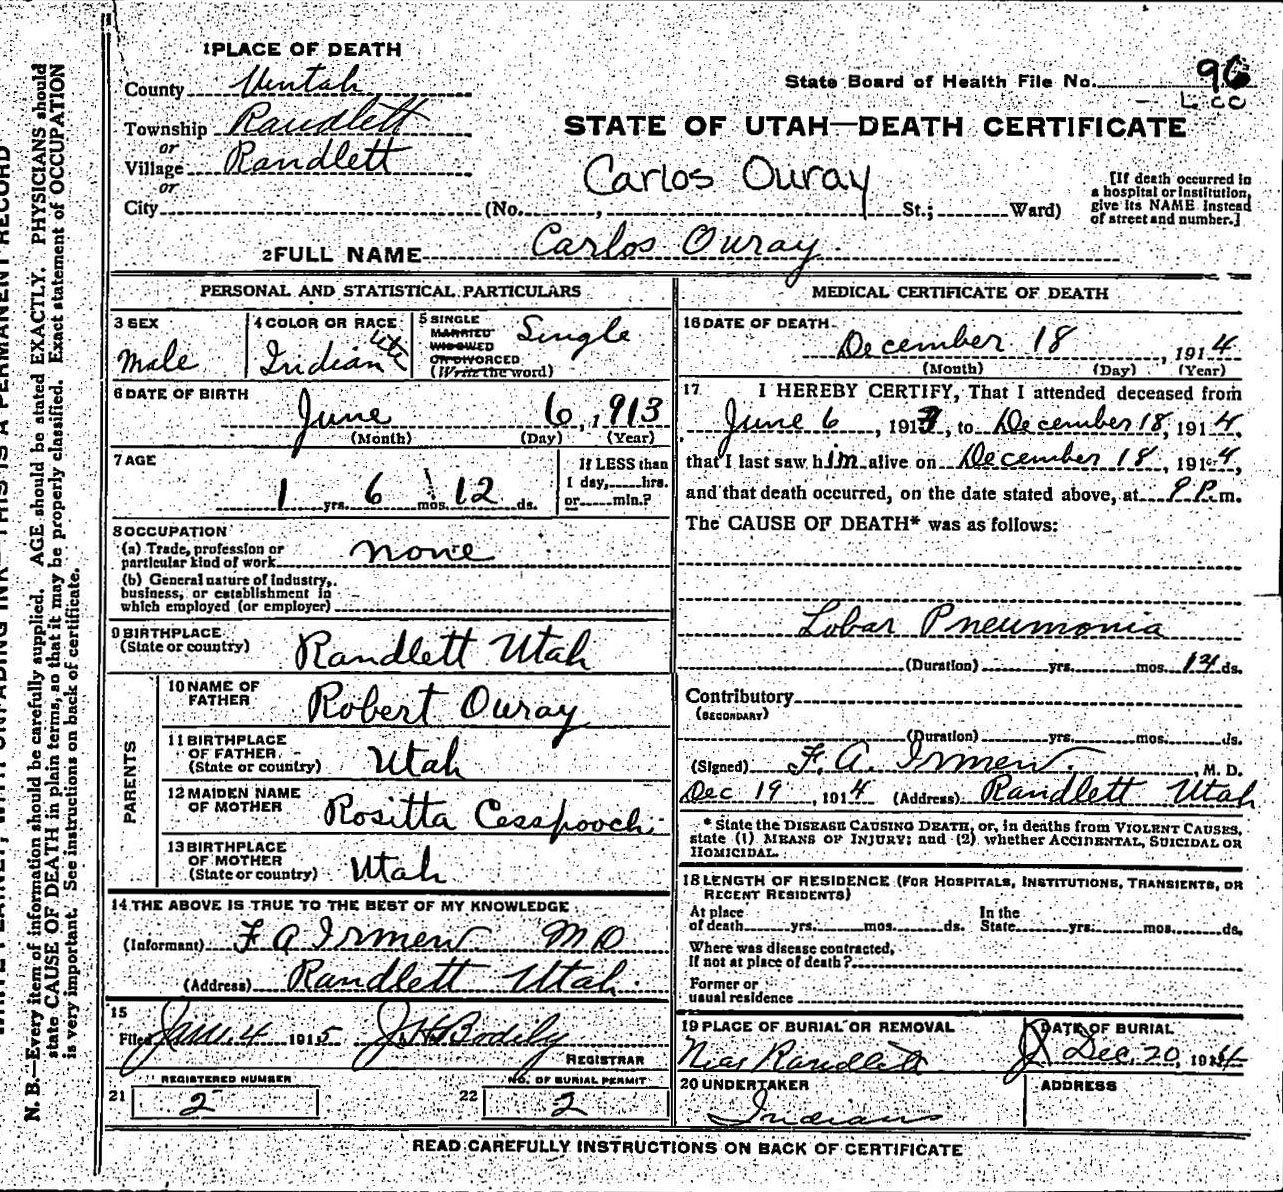 1 PLACE OF DEATH
County Uintah
State Board of Health File No. 96
Township Randlett
or
Village Randlett
or
STATE OF UTAH—DEATH CERTIFICATE
Carlos Ouray
[If death occurred in
a hospital or institution,
give its NAME instead
of street and number.]
City (No. , St.; Ward)
2 FULL NAME Carlos Ouray.
PERSONAL AND STATISTICAL PARTICULARS
3 SEX
Male
4 COLOR OR RACE
Indian Ute
5 SINGLE
MARRIED
WIDOWED
OR DIVORCED
(Write the word)
Single
6 DATE OF BIRTH
June 6, 1913
(Month) (Day) (Year)
7 AGE
1 yrs. 6 mos. 12 ds.
If LESS than
1 day, hrs.
or min.?
8 OCCUPATION
(a) Trade, profession or
particular kind of work none
(b) General nature of industry,
business, or establishment in
which employed (or employer)
9 BIRTHPLACE
(State or country) Randlett Utah
PARENTS
10 NAME OF
FATHER Robert Ouray
11 BIRTHPLACE
OF FATHER
(State or country) Utah
12 MAIDEN NAME
OF MOTHER Rositta Cesspooch
13 BIRTHPLACE
OF MOTHER
(State or country) Utah
14 THE ABOVE IS TRUE TO THE BEST OF MY KNOWLEDGE
(Informant) F A Irmen M D
(Address) Randlett Utah.
15
Filed Jan. 4 1915 J H Bodily
REGISTRAR
REGISTERED NUMBER
21 2
NO. OF BURIAL PERMIT
22 2
MEDICAL CERTIFICATE OF DEATH
16 DATE OF DEATH
December 18, 1914
(Month) (Day) (Year)
17 I HEREBY CERTIFY, That I attended deceased from
June 6, 191 , to December 18, 1914,
that I last saw him alive on December 18, 1914,
and that death occurred, on the date stated above, at 9 P.m.
The CAUSE OF DEATH* was as follows:
Lobar Pneumonia
(Duration) yrs. mos. ds.
Contributory
(SECONDARY)
(Duration) yrs. mos. ds.
(Signed) F. A. Irmen. , M. D.
Dec 19, 1914 (Address) Randlett Utah
* State the DISEASE CAUSING DEATH, or, in deaths from VIOLENT CAUSES,
state (1) MEANS OF INJURY; and (2) whether ACCIDENTAL, SUICIDAL OR
HOMICIDAL.
18 LENGTH OF RESIDENCE (FOR HOSPITALS, INSTITUTIONS, TRANSIENTS, OR
RECENT RESIDENTS)
At place
of death yrs. mos. ds.
In the
State yrs. mos. ds.
Where was disease contracted,
If not at place of death?
Former or
usual residence
19 PLACE OF BURIAL OR REMOVAL
Near Randlett
DATE OF BURIAL
Dec. 20, 1914
20 UNDERTAKER
Indians
ADDRESS
READ CAREFULLY INSTRUCTIONS ON BACK OF CERTIFICATE
THIS IS A PERMANENT RECORD
N. B.—Every item of information should be carefully supplied. AGE should be stated EXACTLY. PHYSICIANS should
state CAUSE OF DEATH in plain terms, so that it may be properly classified. Exact statement of OCCUPATION
is very important. See instructions on back of certificate.